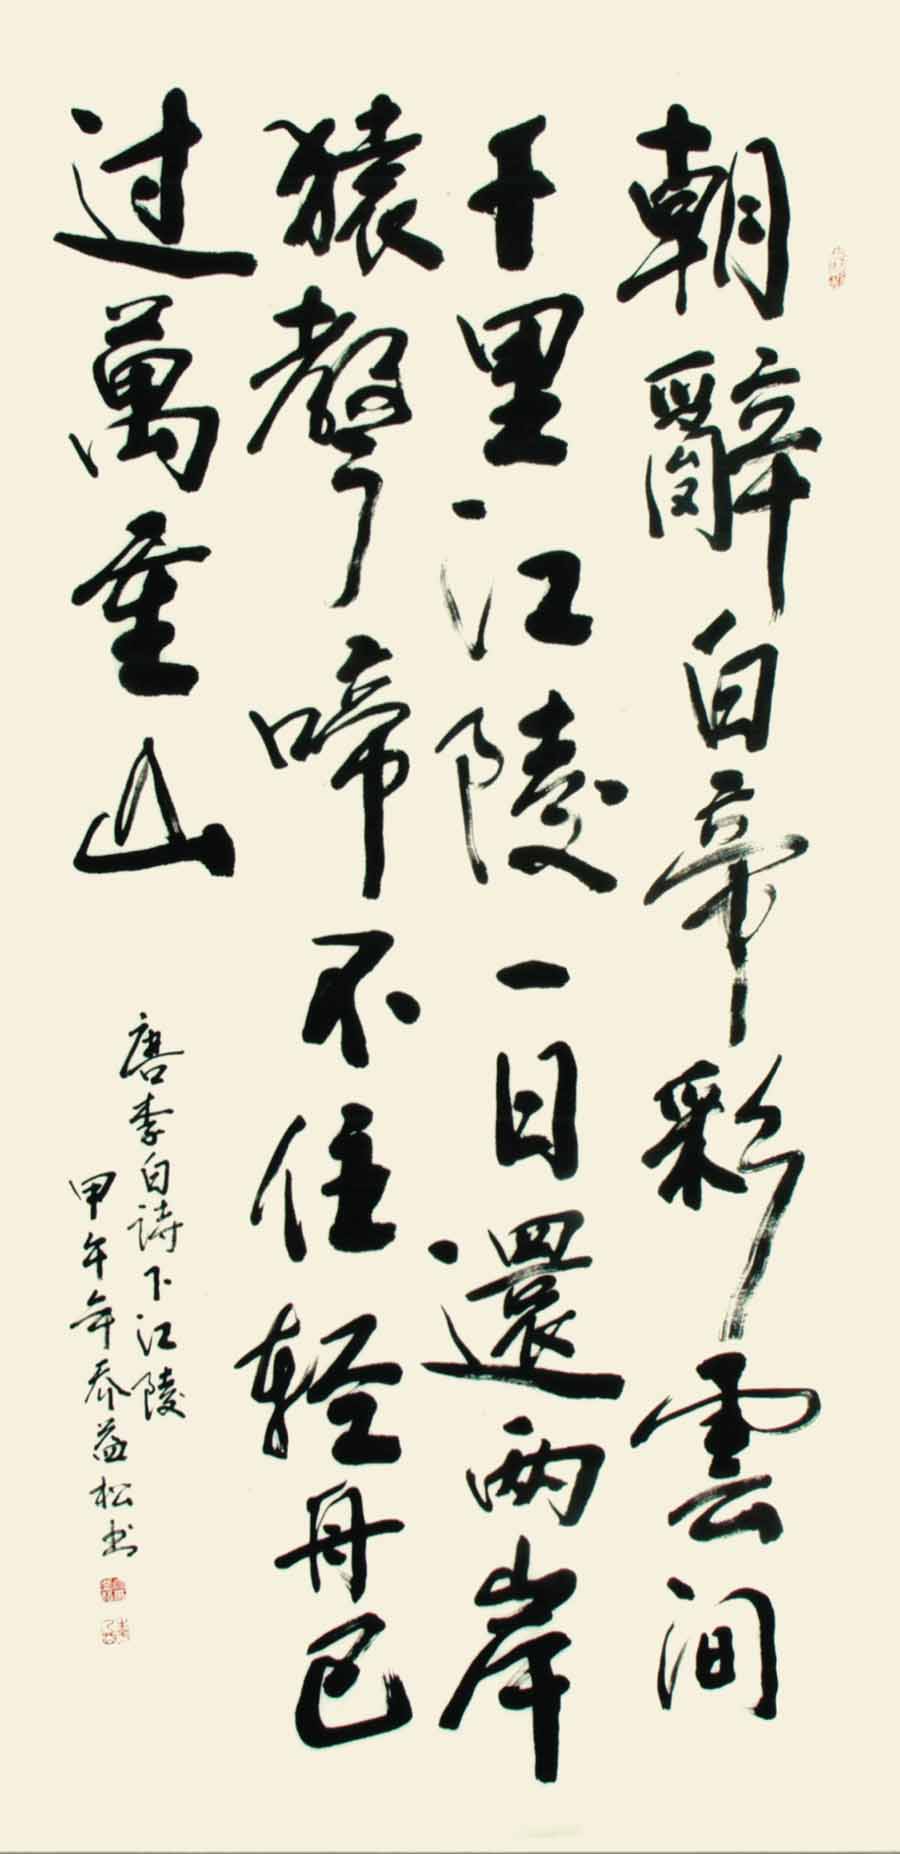 朝辭白帝彩雲间
千里江陵一日還两岸
猿聲啼不住轻舟已
过萬重山
唐李白詩下江陵
甲午年泰益松书